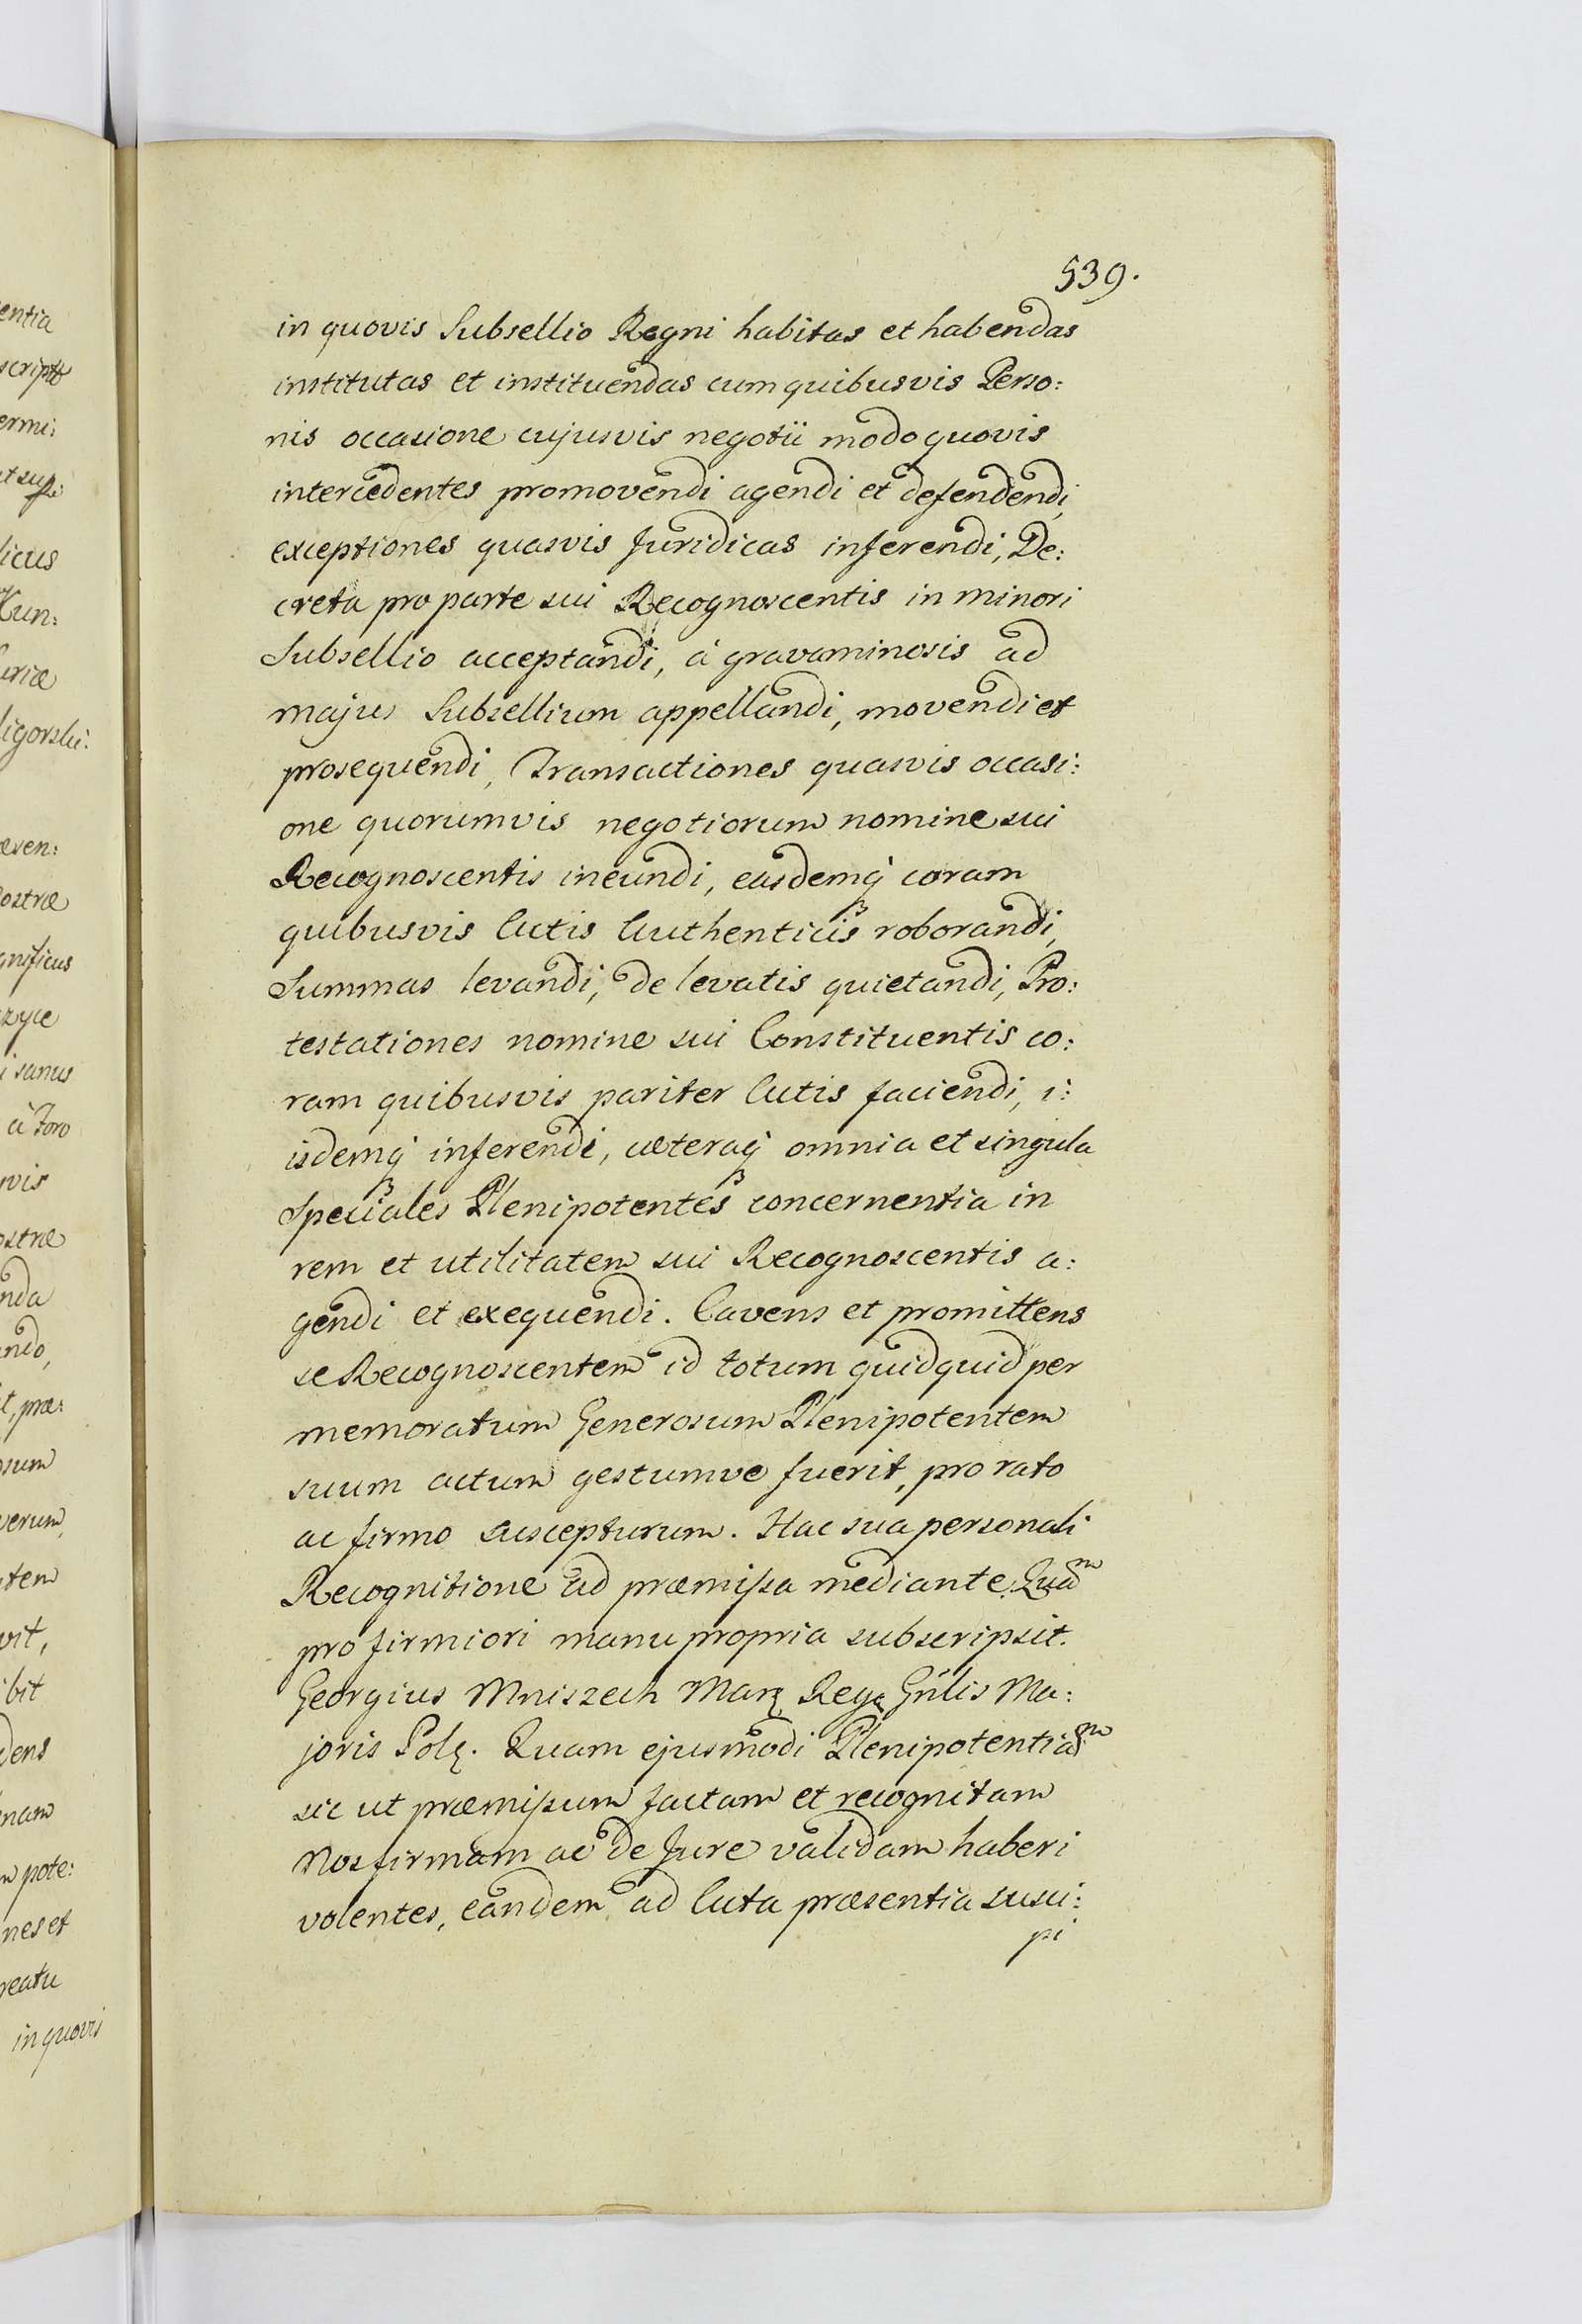 539.
in quovis Subsellio Regni habitas et habendas
institutas et instituendas cum quibusvis Perso:
nis occasione cujusvis negotii modo quovis
intercedentes promovendi agendi et defendendi,
exceptiones quasvis Juridicas inferendi, De:
creta pro parte sui Recognoscentis in minori
Subsellio acceptandi, à gravaminosis ad
majus Subsellium appellandi, movendi et
prosequendi, Transactiones quasvis occasi:
one quorumvis negotiorum nomine sui
Recognoscentis ineundi, easdemq coram
quibusvis Actis Authenticis roborandi,
Summas levandi, de levatis quietandi, Pro:
testationes nomine sui Constituentis co:
ram quibusvis pariter Actis faciendi, i:
isdemq inferendi, cæteraq omnia et singula
Speciales Plenipotentes concernentia in
rem et utilitatem sui Recognoscentis a:
gendi et exequendi. Cavens et promittens
se Recognoscentem id totum quidquid per
memoratum Generosum Plenipotentem
suum actum gestumve fuerit, pro rato
ac firmo suscepturum. Hac sua personali
Recognitione ad præmissa mediante. Quam
pro firmiori manu propria subscripsit.
Georgius Mniszech Marꝫ Regꝫ Gnlis Ma:
joris Polꝫ. Quam ejusmodi Plenipotentiam
sic ut præmissum factam et recognitam
Nos firmam ac de Jure validam haberi
volentes, eandem ad Acta præsentia susci:
pi
entia
ermi:
licus
Kun:
ligorski:
æsen:
ostræ
gnificus
i sanus
à Foro
rvis
ostræ
nda
t, præ:
osum
verum,
ntem
vit,
ibit
dens
nam
m pote:
nes et
reatu
in quovis